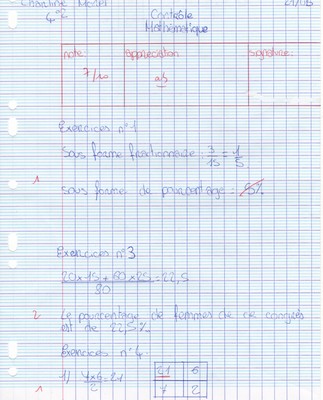 Charline Morel 21/03
4ème2 Contrôle
Mathématique
note: appréciation signature:
7/10 ab
Exercices n°1
Sous forme fractionnaire : 3/15 = 1/5
1
sous forme de pourcentage = 5%
Exercices n°3
20×15 + 60×25 = 22,5
80
2 Le pourcentage de femmes de ce congrès
est de 22,5%
Exercices n°4
1) 7×6 = 21 21 6
2 7 2
1